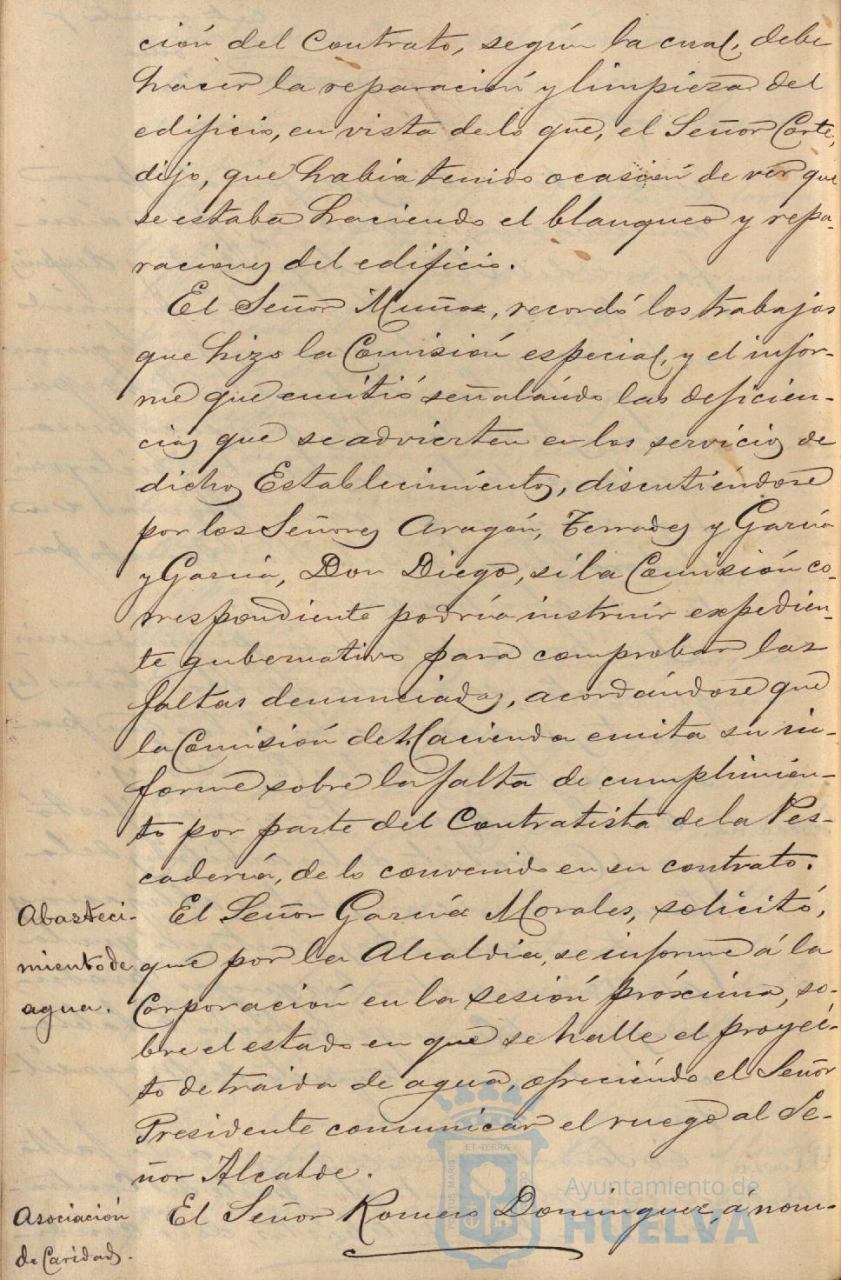 ción del Contrato, según la cual, debe
hacer la reparación y limpieza del
edificio, en vista de lo que, el Señor Corte,
dijo, que había tenido ocasión de ver que
se estaba haciendo el blanqueo y repa-
raciones del edificio.
El Señor Muñoz, recordó los trabajos
que hizo la Comisión especial, y el infor-
me que emitió señalando las deficien-
cias que se advierten en los servicios de
dichos Establecimientos, discutiéndose
por los Señores Aragón, Terrades y García
y García, Don Diego, si la Comisión co-
rrespondiente podría instruir expedien-
te gubernativo para comprobar las
faltas denunciadas, acordándose que
la Comisión de Hacienda emita su in-
forme sobre la falta de cumplimien-
to por parte del Contratista de la Pes-
cadería, de lo convenido en su contrato.
Abasteci-
miento de
agua.
El Señor García Morales, solicitó,
que por la Alcaldía, se informe á la
Corporación en la sesión próxima, so-
bre el estado en que se halle el proyec-
to de traida de agua, ofreciéndo el Señor
Presidente comunicar el ruego al Se-
ñor Alcalde.
Asociación
de Caridad.
El Señor Romero Dominguez, á nom-
PORTUS MARIS
ET TERRAE
Ayuntamiento de
HUELVA